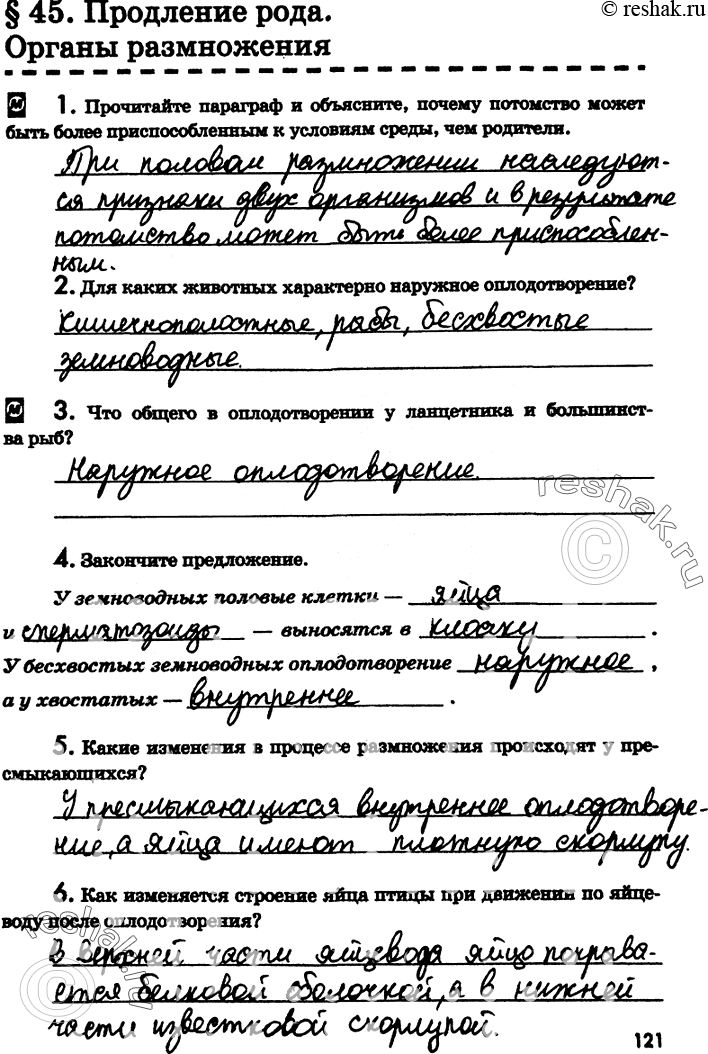 © reshak.ru
§ 45. Продление рода.
Органы размножения
1. Прочитайте параграф и объясните, почему потомство может
быть более приспособленным к условиям среды, чем родители.
При половом размножении наследуют-
ся признаки двух организмов и в результате
потомство может быть более приспособлен-
ным.
2. Для каких животных характерно наружное оплодотворение?
Кишечнополостные, рыбы, бесхвостые
земноводные.
3. Что общего в оплодотворении у ланцетника и большинст-
ва рыб?
Наружное оплодотворение.
reshak.ru
©
4. Закончите предложение.
У земноводных половые клетки — яйца
и сперматозоиды — выносятся в клоаку .
У бесхвостых земноводных оплодотворение наружное ,
а у хвостатых — внутреннее .
5. Какие изменения в процессе размножения происходят у пре-
смыкающихся?
У пресмыкающихся внутреннее оплодотворе-
ние, а яйца имеют плотную скорлупу.
6. Как изменяется строение яйца птицы при движении по яйце-
воду после оплодотворения?
В верхней части яйцевода яйцо покрыва-
ется белковой оболочкой, а в нижней
части известковой скорлупой.
reshak.ru
©
121